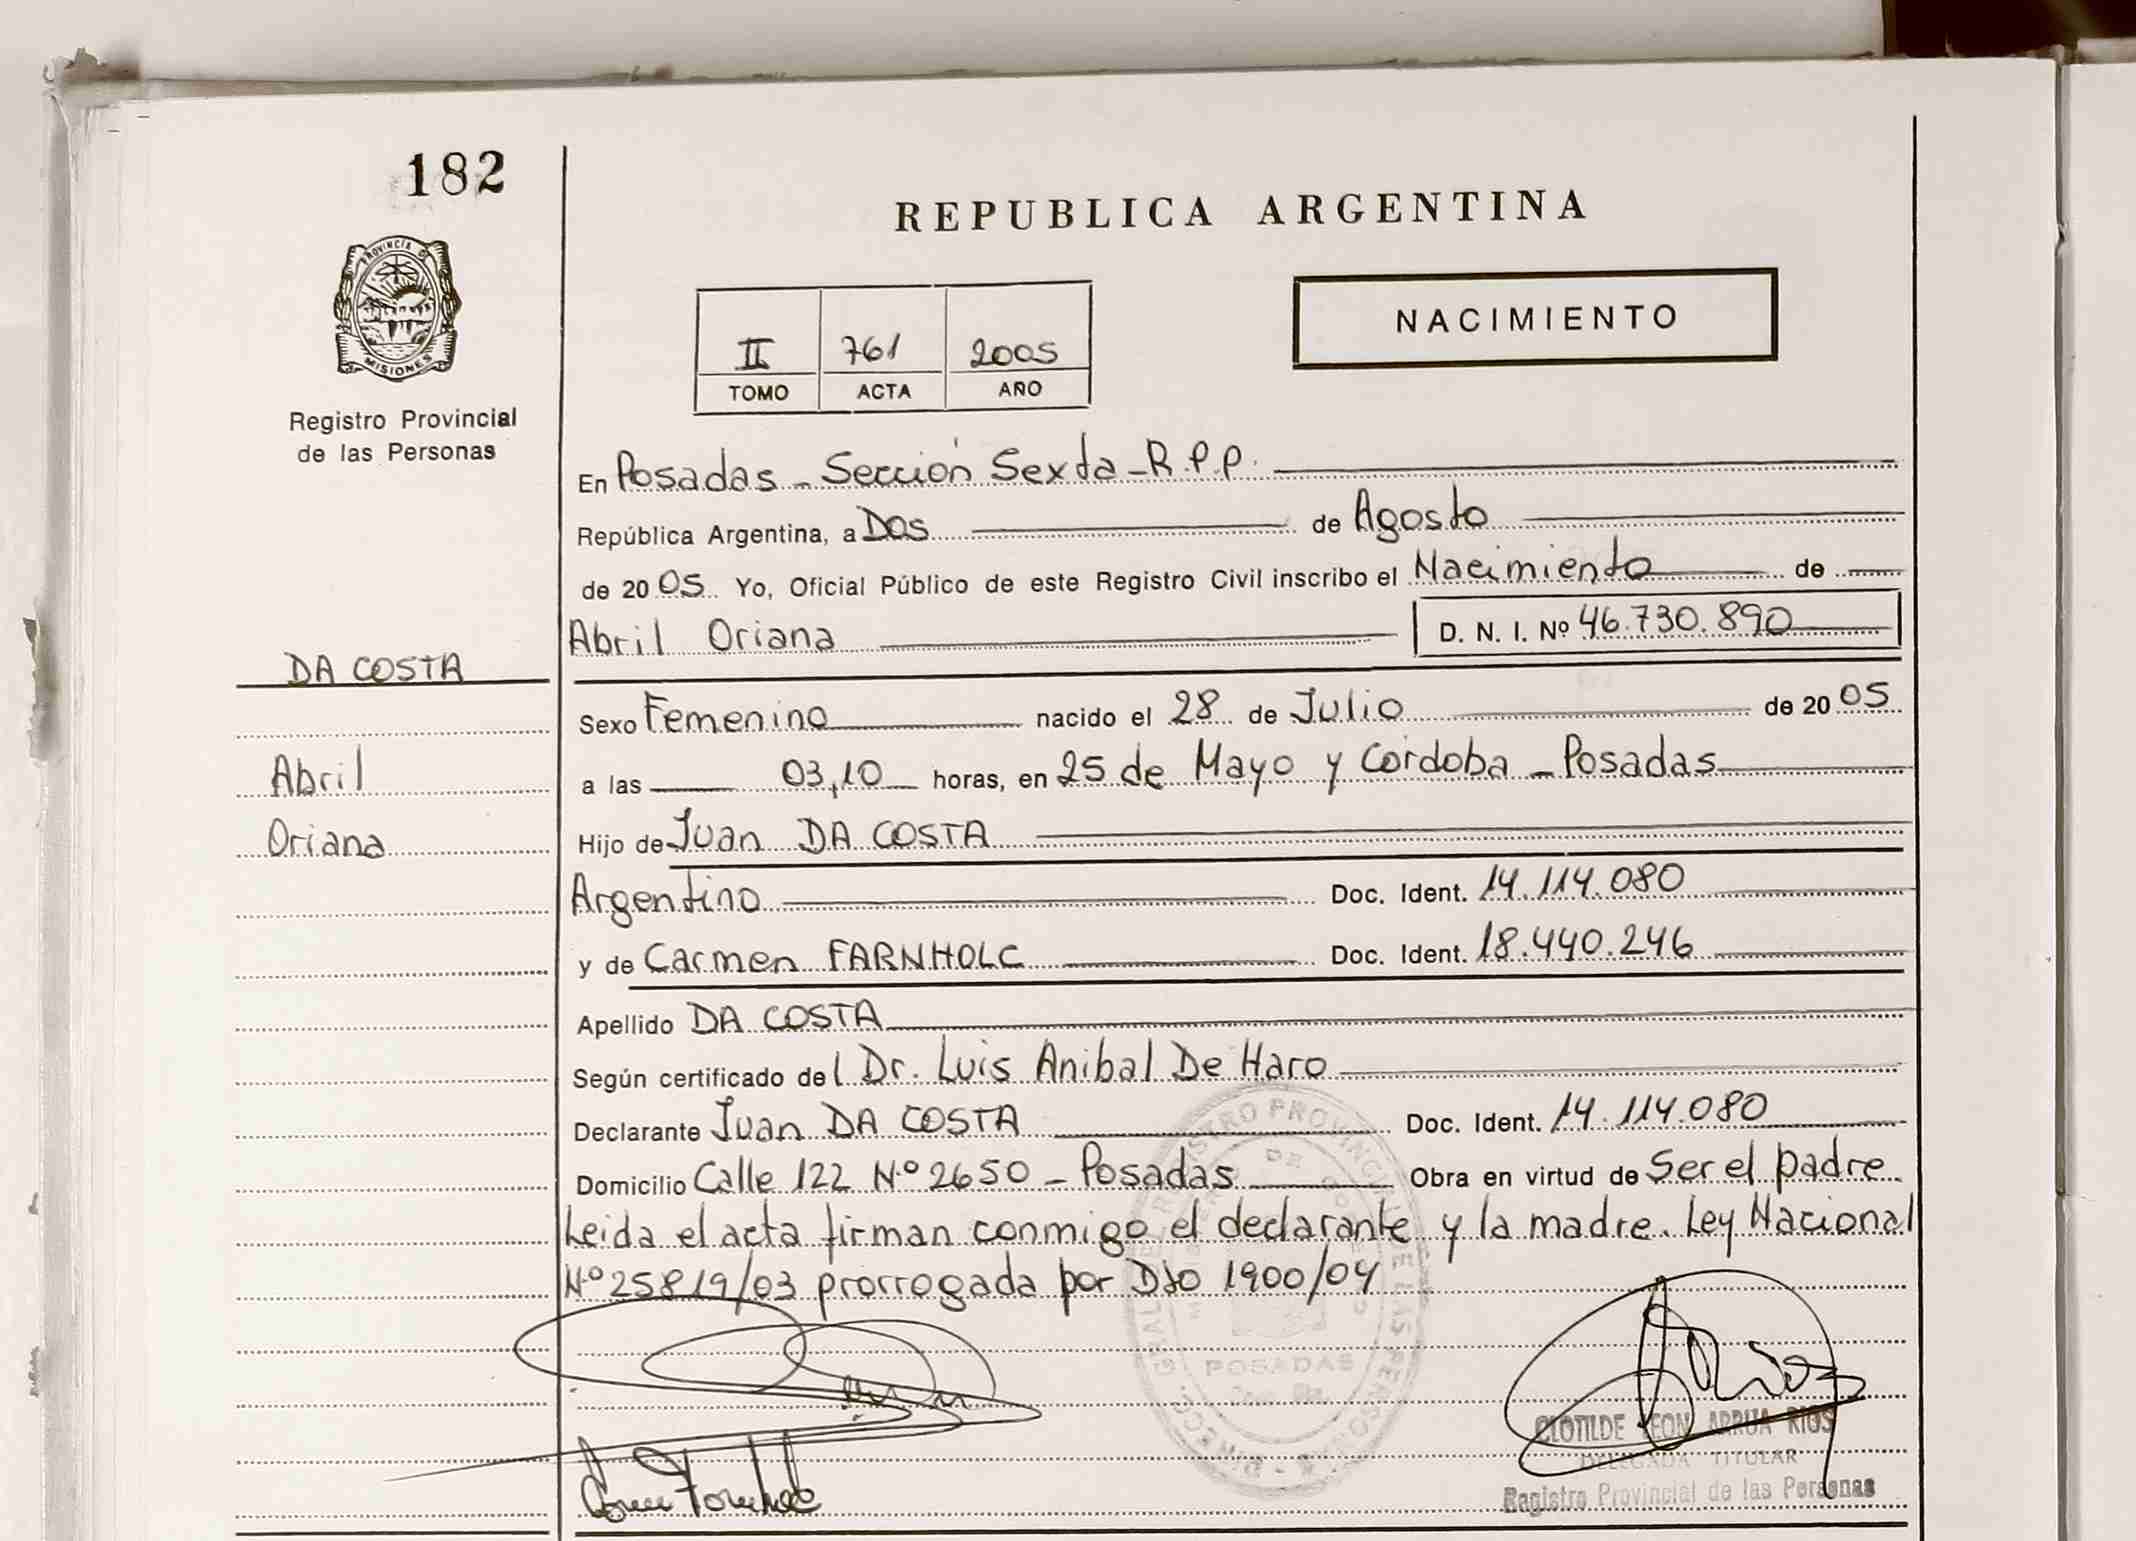 182
REPUBLICA ARGENTINA
PROVINCIA D
MISIONES
Registro Provincial
de las Personas
NACIMIENTO
II 761 2005
TOMO ACTA AÑO
En Posadas - Sección Sexta - R.P.P.
República Argentina, a Dos de Agosto
de 2005 Yo, Oficial Público de este Registro Civil inscribo el Nacimiento de
Abril Oriana D. N. I. Nº 46.730.890
DA COSTA
Sexo Femenino nacido el 28 de Julio de 2005
Abril
a las 03,10 horas, en 25 de Mayo y Córdoba - Posadas
Oriana
Hijo de Juan DA COSTA
Argentino Doc. Ident. 14.114.080
y de Carmen FARNHOLC Doc. Ident. 18.440.246
Apellido DA COSTA
Según certificado del Dr. Luis Anibal De Haro
Declarante Juan DA COSTA Doc. Ident. 14.114.080
Domicilio Calle 122 Nº 2650 - Posadas Obra en virtud de Ser el padre
Leida el acta firman conmigo el declarante y la madre. Ley Nacional
Nº 25819/03 prorrogada por Dto 1900/04
POSADAS
CLOTILDE LEON ARRUA RIOS
DELEGADA TITULAR
Registro Provincial de las Personas